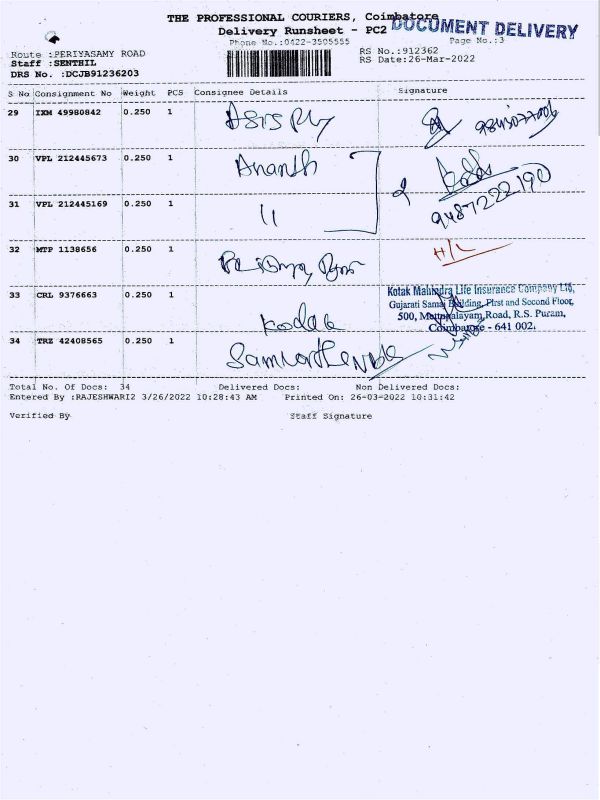 THE PROFESSIONAL COURIERS, Coimbatore
DOCUMENT DELIVERY
Delivery Runsheet - PC2
Page No.:3
Phone No.:0422-3505555
Route :PERIYASAMY ROAD
RS No.:912362
Staff :SENTHIL
RS Date:26-Mar-2022
DRS No. :DCJB91236203
S No Consignment No Weight PCS Consignee Details Signature
29 IXM 49980842 0.250 1
30 VPL 212445673 0.250 1 Ananth
9487222190
31 VPL 212445169 0.250 1 11
32 MTP 1138656 0.250 1 H/L
33 CRL 9376663 0.250 1 Kodak
Kotak Mahindra Life Insurance Company Ltd,
Gujarati Samaj Building, First and Second Floor,
500, Mettupalayam Road, R.S. Puram,
Coimbatore - 641 002.
34 TRZ 42408565 0.250 1
Total No. Of Docs: 34 Delivered Docs: Non Delivered Docs:
Entered By :RAJESHWARI2 3/26/2022 10:28:43 AM Printed On: 26-03-2022 10:31:42
Verified By Staff Signature